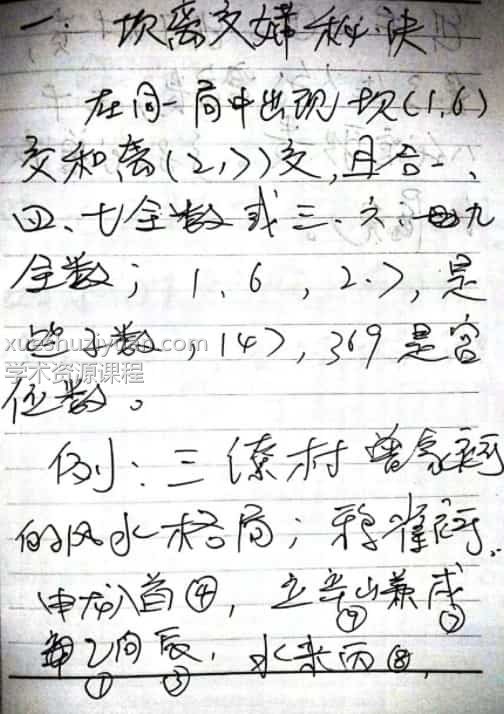 一、坎离交媾秘诀
在同一局中出现坎(1,6)
交和离(2,7)交,且合一、
四、七全数或三、六、九
全数; 1、6、2.7,是
坐子数,147,369是宫
位数。
xueshuziyuan.com
学术资源课程
例:三僚村曾家祠
的风水格局;鸦雀祠.
申龙入首④,立辛山兼戌
⑨ ⑦
乙向辰,水来丙⑧,
① ③